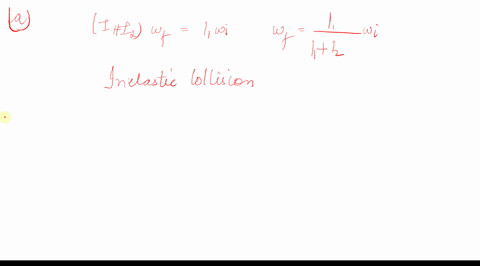 (a) (I₁+I₂) ω_f = I₁ωi ω_f = I₁ / (I₁+I₂) ωi
Inelastic Collision